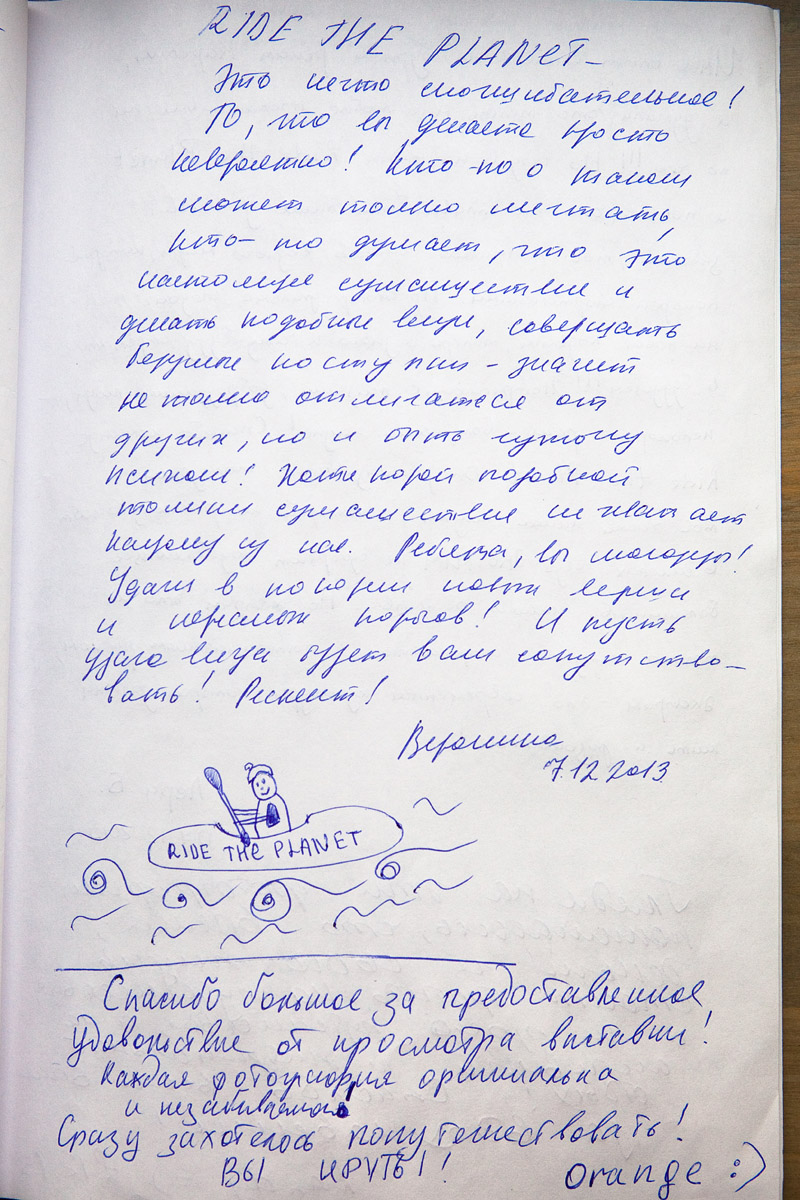 RIDE THE PLANET –
Это нечто сногшибательное!
То, что вы делаете просто
невероятно! Кто-то о таком
может только мечтать,
кто-то думает, что это
настоящее сумасшествие и
делать подобные вещи, совершать
безумные поступки – значит
не только отличаться от
других, но и быть
психом! Хотя порой подобной
толики сумасшествия не хватает
каждому из нас. Ребята, вы молодцы!
Удачи в покорении новых вершин
и порогов! И пусть
удача всегда будет вам сопутство-
вать! Респект!
Вероника
7.12.2013
RIDE THE PLANET
Спасибо большое за предоставленное
удовольствие от просмотра выставки!
Каждая фотография оригинальна
и незабываема
Сразу захотелось попутешествовать!
ВЫ КРУТЫ!!
orange :)